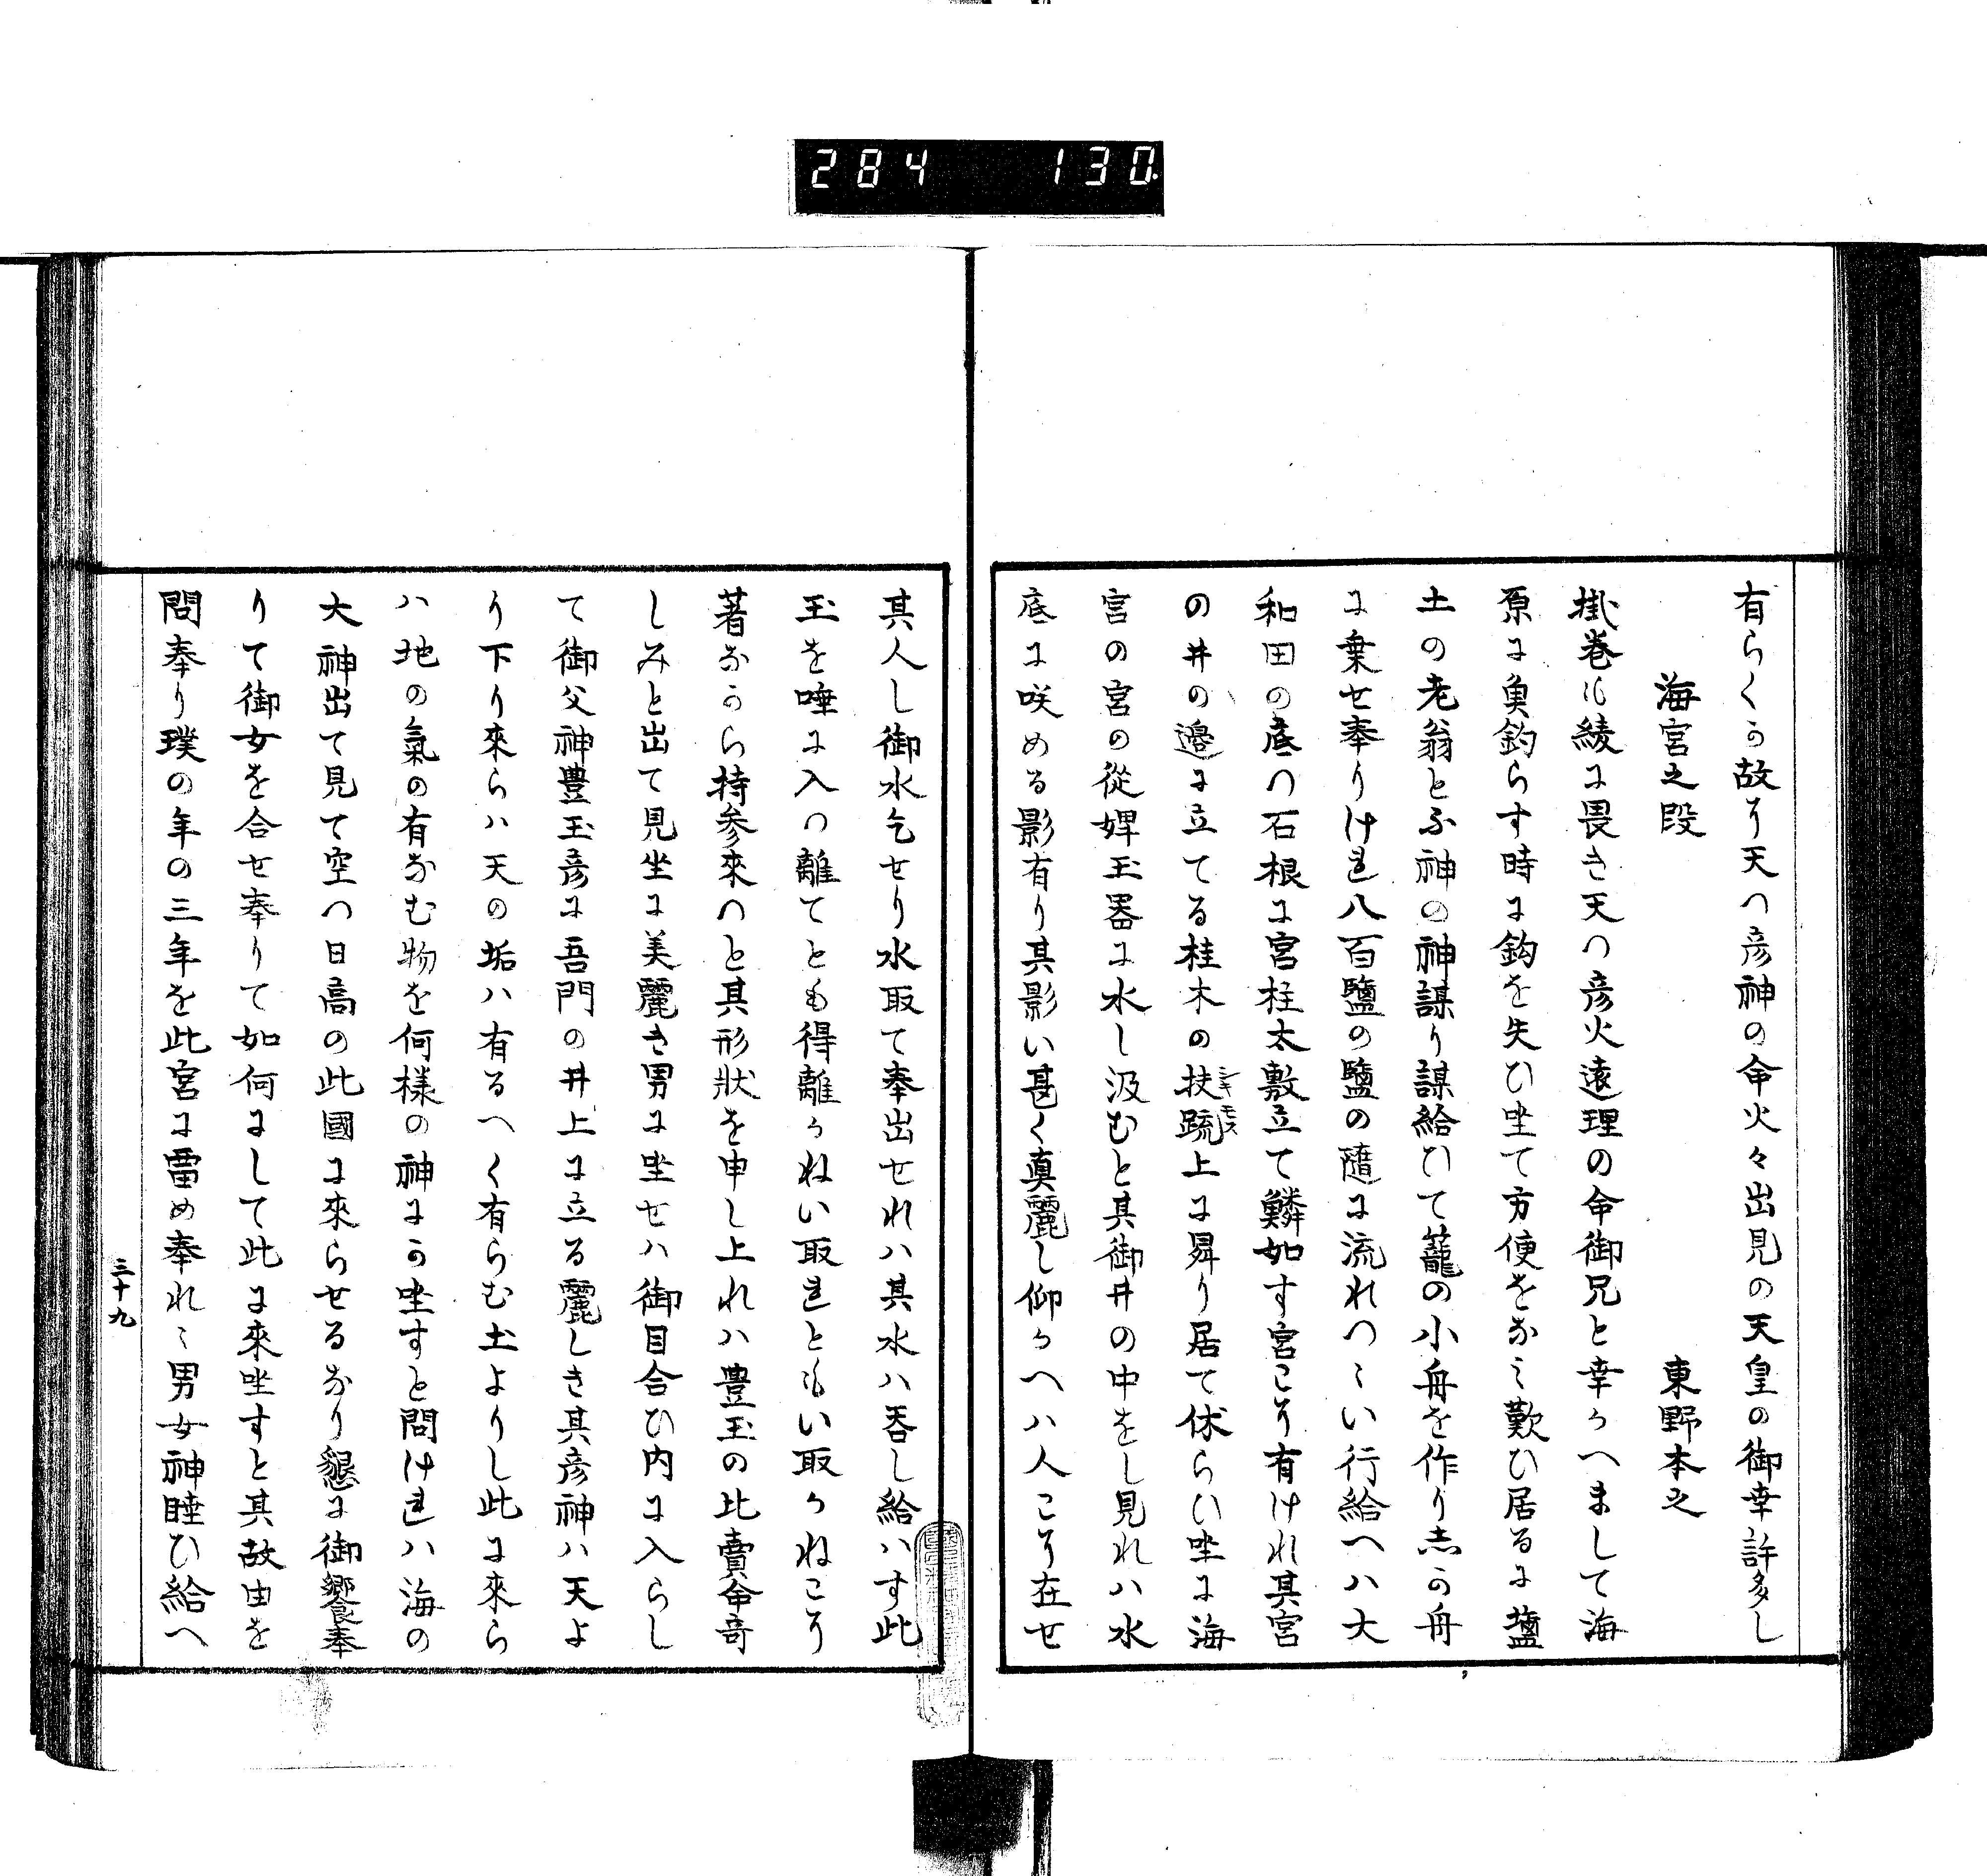 284 130
有らくか故そ天つ彦神の命火々出見の天皇の御幸許多し
海宮之段 東野本之
掛巻も綾に畏き天つ彦火遠理の命御兄と幸かへまして海
原に魚釣らす時に鈎を失ひ坐て方便をなミ歎ひ居るに塩
土の老翁とふ神の神謀り謀給ひて籠の小舟を作り志か舟
に乗せ奉りけれ八百鹽の鹽の随に流れつゝい行給へハ大
和田の底つ石根に宮柱太敷立て鱗如す宮こそ有けれ其宮
の井の邊に立てる桂木の扶疏シキモス上に昇り居て休らひ坐に海
宮の宮の從婢玉器に水し汲むと其御井の中をし見れハ水
底に咲める影有り其影い甚く真麗し仰かへハ人こそ在せ
其人し御水乞せり水取て奉出せれハ其水ハ呑し給ハす此
玉を唾に入つ離てとも得離かねい取れともい取かねこそ
著なから持参来つと其形状を申し上れハ豊玉の比賣命奇
しみと出て見坐に美麗き男に坐せハ御目合ひ内に入らし
て御父神豊玉彦に吾門の井上に立る麗しき其彦神ハ天よ
り下り來らハ天の垢ハ有るへく有らむ土よりし此に來ら
ハ地の氣の有なむ物を何様の神にか坐すと問けれハ海の
大神出て見て空つ日高の此國に來らせるなり懇に御饗奉
りて御女を合せ奉りて如何にして此に來坐すと其故由を
問奉り璞の年の三年を此宮に留め奉れゝ男女神睦ひ給へ
三十九